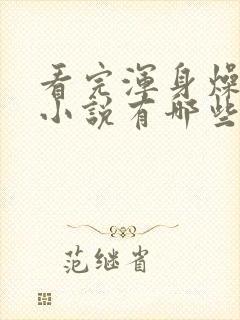 看完渾身燥
小說有哪些
范继省